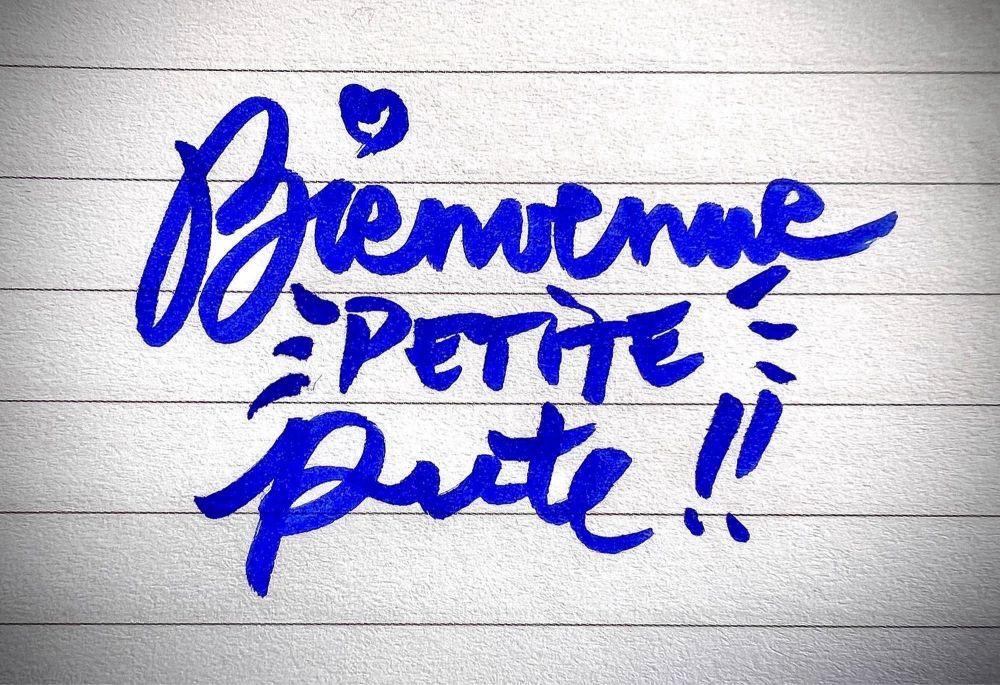 Bienvenue
PETITE
pute !!